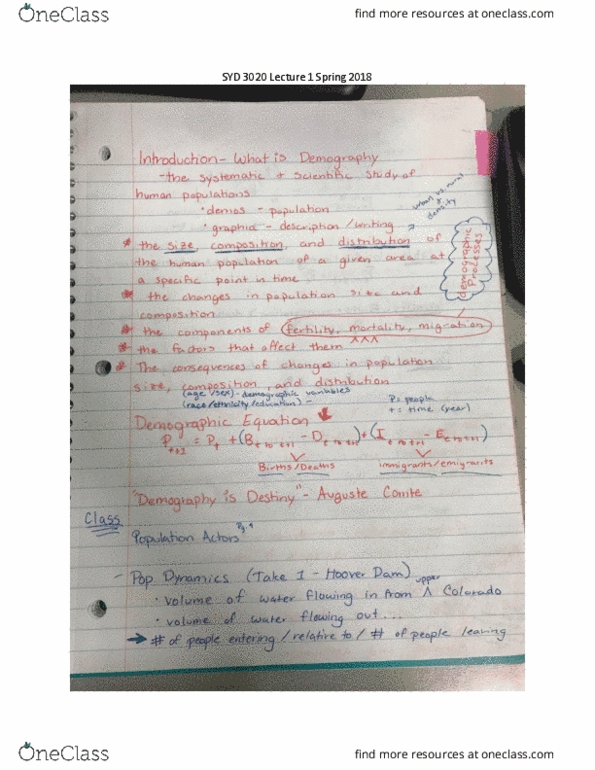 OneClass
find more resources at oneclass.com
SYD 3020 Lecture 1 Spring 2018
Introduction - What is Demography
- the systematic + scientific study of
human populations
• demos - population
• graphia - description / writing
urban vs. rural
+
density
* the size, composition, and distribution of
the human population of a given area at
a specific point in time
demographic
processes
* the changes in population size and
composition
* the components of fertility, mortality, migration
* the factors that affect them
* The consequences of changes in population
size, composition, and distribution
(age/sex) - demographic variables
(race/ethnicity/education) -
P = people
t = time (year)
Demographic Equation
P t+1 = P t + (B t to t+1 - D t to t+1) + (I t to t+1 - E t to t+1)
Births/Deaths
immigrants/emigrants
"Demography is Destiny" - Auguste Comte
Class
Population Actors
- Pop Dynamics (Take 1 - Hoover Dam)
upper
• volume of water flowing in from ^ Colorado
• volume of water flowing out...
→ # of people entering / relative to / # of people leaving
OneClass
find more resources at oneclass.com